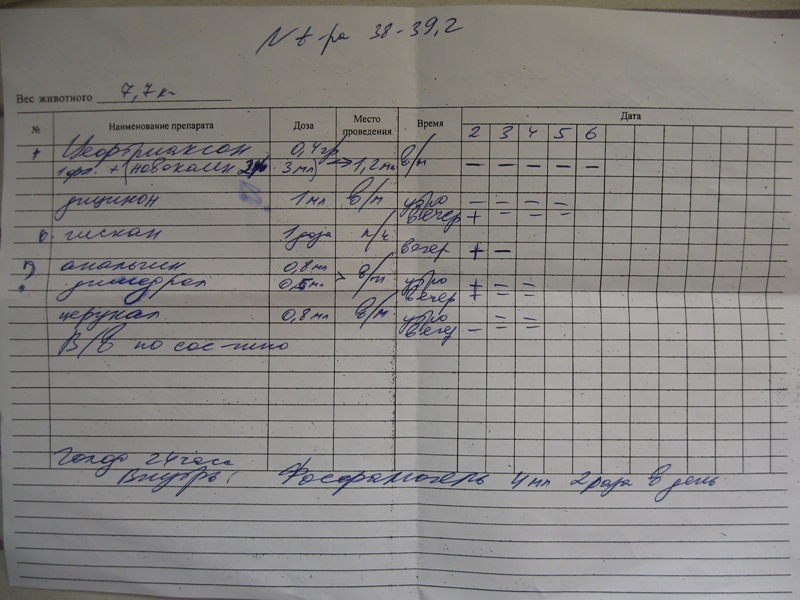 N t-ра 38-39,2
Вес животного 7,7 кг
№ Наименование препарата Доза Место проведения Время Дата
2 3 4 5 6
+ Цефтриаксон 0,4 гр
1 фл. + (новокаин 2% 3 мл) → 1,2 мл в/м – – – – –
дицинон 1 мл в/м утро – = – –
вечер + = = =
гискан 1 доза п/к
вечер + –
анальгин 0,8 мл
димедрол 0,5 мл > в/м утро + – –
вечер + = =
церукал 0,8 мл в/м утро = =
вечер – = =
В/в по сос-нию
Голод 24 часа
Внутрь: Фосфалюгель 4 мл 2 раза в день